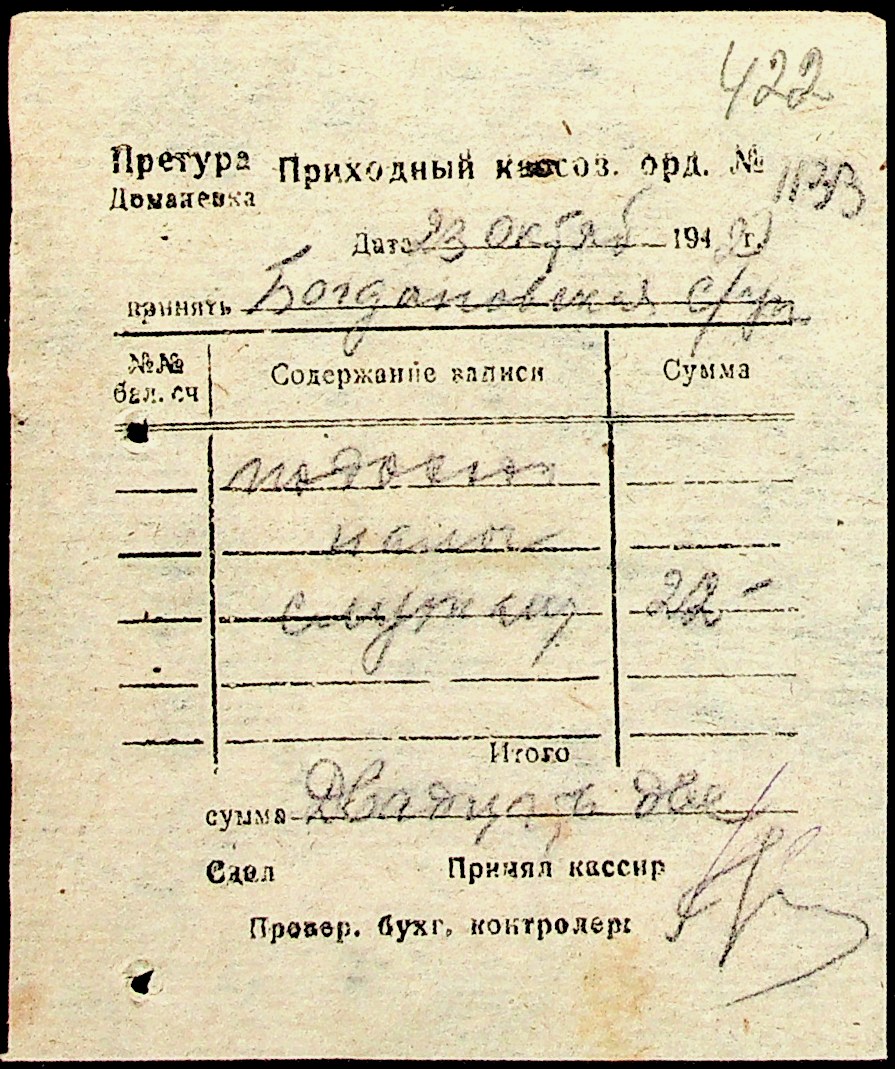 422
Претура Приходный кассов. орд. №
Доманевка 1133
Дата 23 октяб 194 2 г.
принять Богдановская с/упр
№№ бал. сч Содержание записи Сумма
подоход
налог
служащ 22-
Итого
сумма Двадцать две
Сдал Принял кассир
Провер. бухг. контролер: